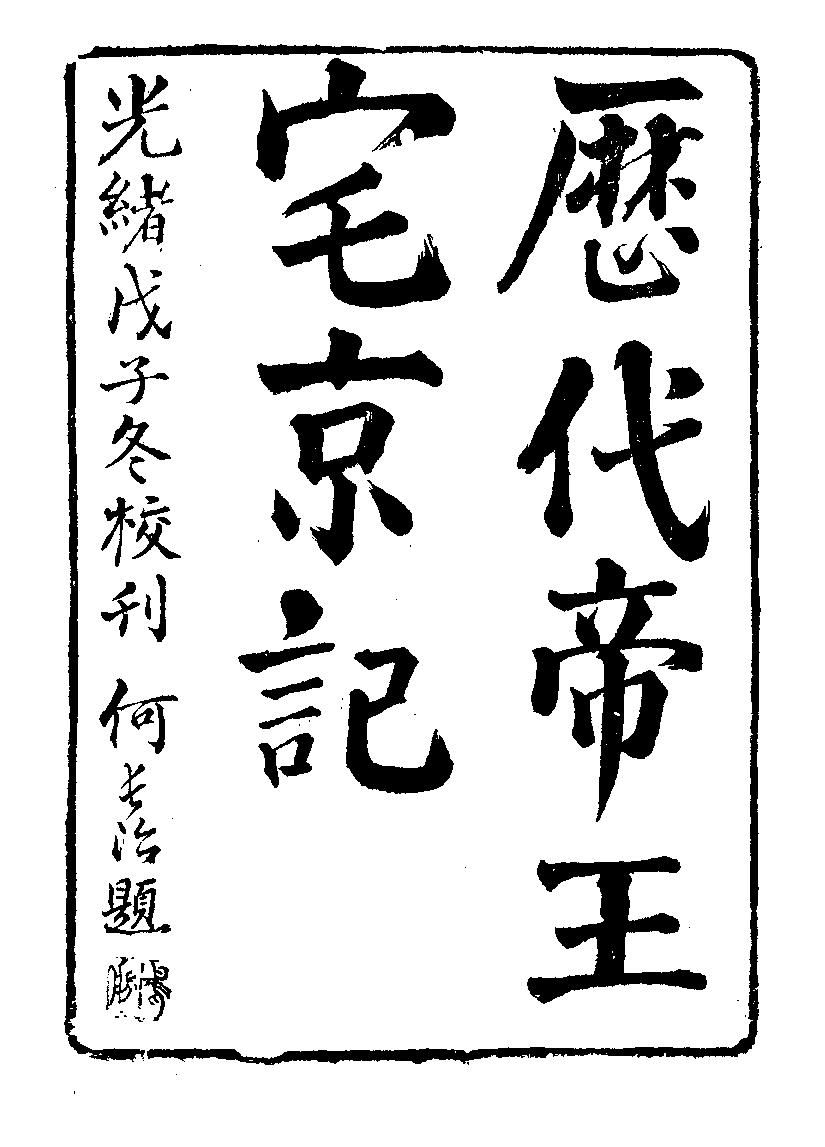 歴代帝王
宅京記
光緒戊子冬校刊 何長治題